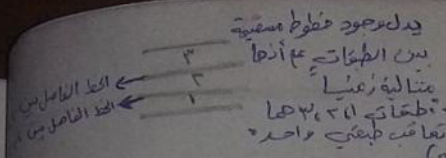 يدل وجود خطوط مستقيمة
بين الطبقات على أنها
متتالية زمنيًا
طبقات ١، ٢، ٣ هما
تعاقب طبقي واحد.
٣
٢
١
الخط الفاصل بين
الخط الفاصل بين